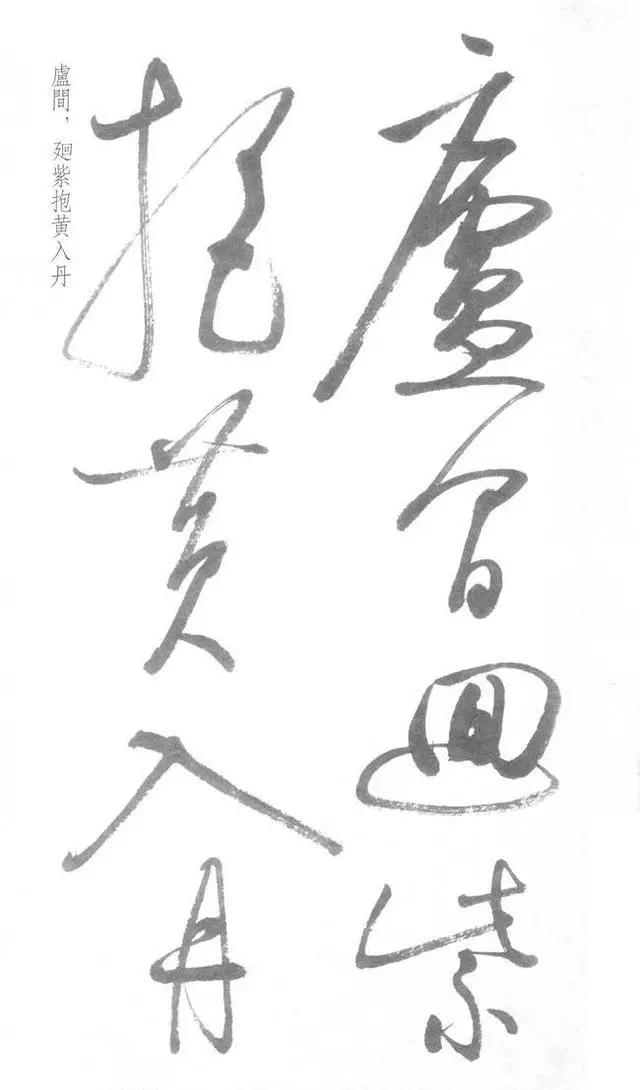 廬間廻紫
抱黄入丹
盧間，廻紫抱黄入丹